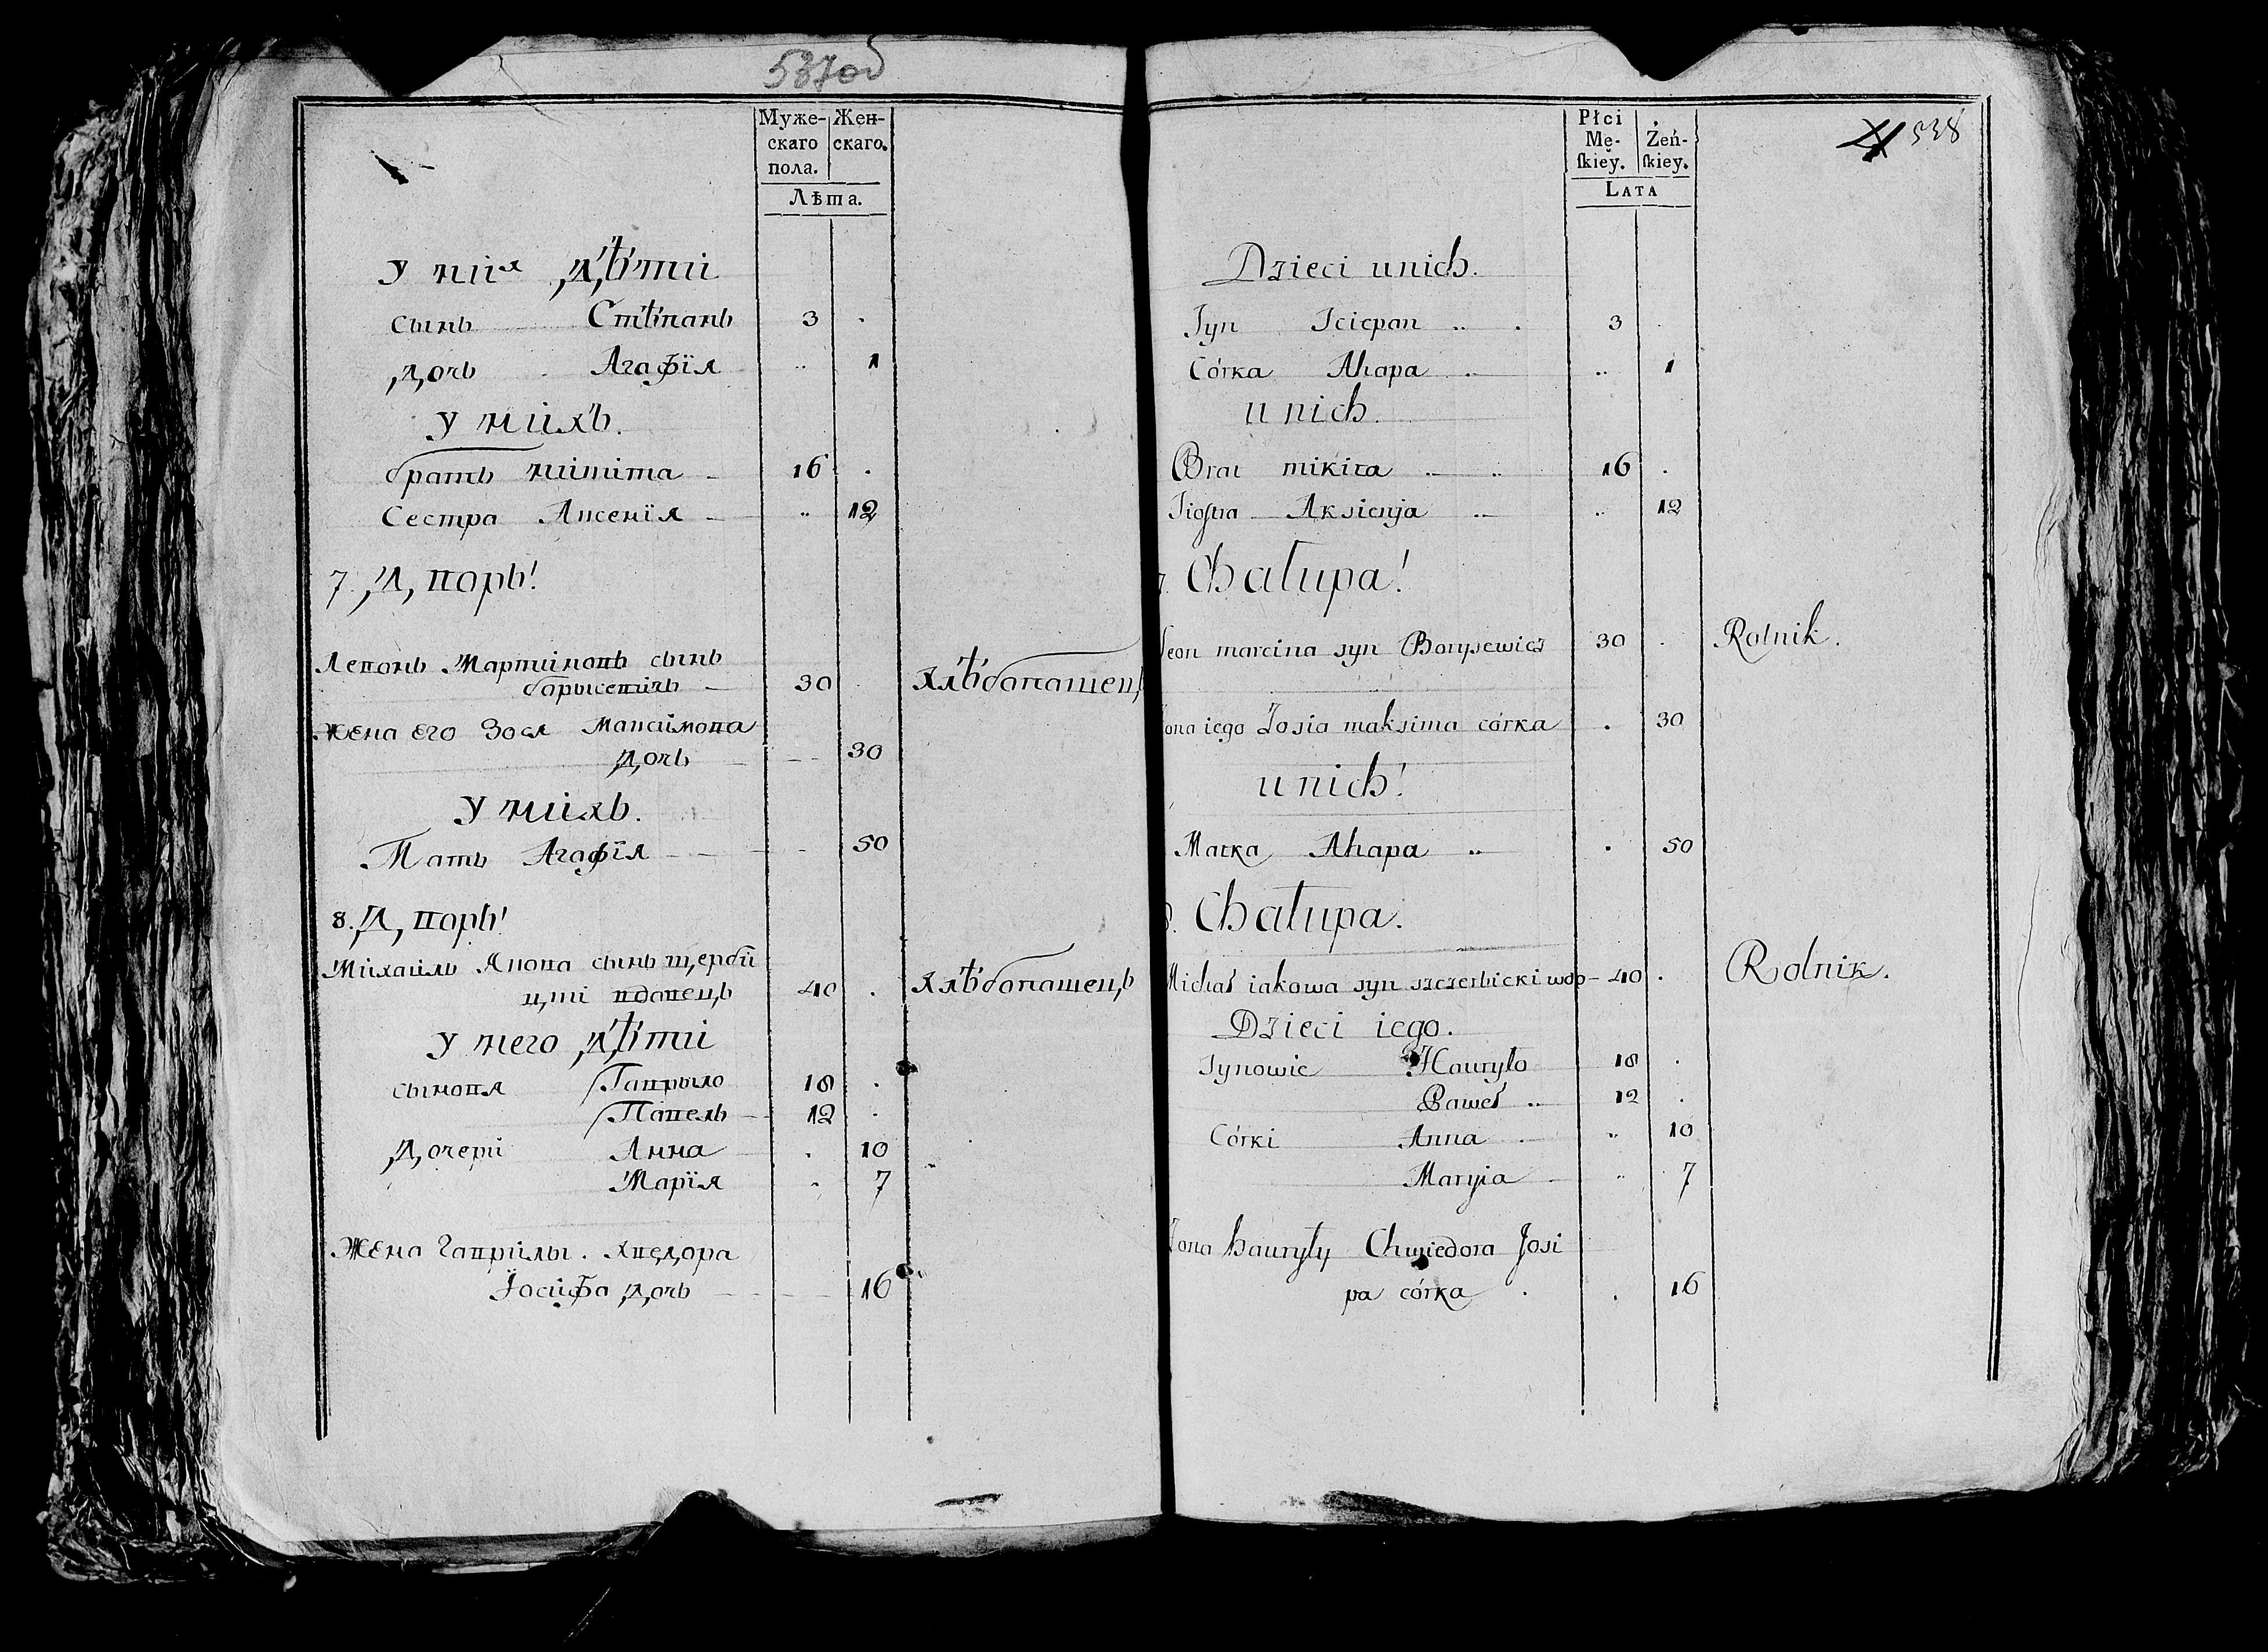 537об
Муже- Жен-
скаго скаго.
пола.
Лѣта.
У них дѣти
сынъ Стѣпанъ 3 .
дочь Агафїя .. 1
У нихъ.
братъ никита 16 .
Сестра Аксенїя .. 12
7. Дворъ!
Левонъ Мартиновъ сынъ
барысевичъ 30 Хлѣбопашец
жена его Зося Максимова
дочь 30
У нихъ.
Мать Агафїя 50
8. Дворъ!
Михаилъ Якова сынъ щерби
цкі вдовецъ 40 . Хлѣбопашецъ
У него дѣти
сыновя Гаврыло 18 .
Павелъ 12 .
Дочери Анна . 10
Марїя .. 7
Жена гаврилы. хведора
Їосифа дочь 16
538
Płci
Mę- Żeń-
ſkiey. ſkiey.
LATA
Dzieci unich.
Syn Sciepan .. . 3 .
Córka Ahapa .. .. 1
unich.
Brat mikita .. .. 16 .
Siostra Aksienja .. .. 12
7. Chałupa!
Leon marcina syn Borysewicz 30 . Rolnik.
ona iego Zosia maksima córka . 30
unich!
Matka Ahapa .. . 50
8. Chałupa.
Michał iakowa syn szczerbicki wdo- 40 . Rolnik.
Dzieci iego.
Synowie Hauryło 18 .
Paweł .. 12 .
Córki Anna .. 10
Maryia .. 7
Zona hauryły Chwiedora Josi
pa córka . . 16